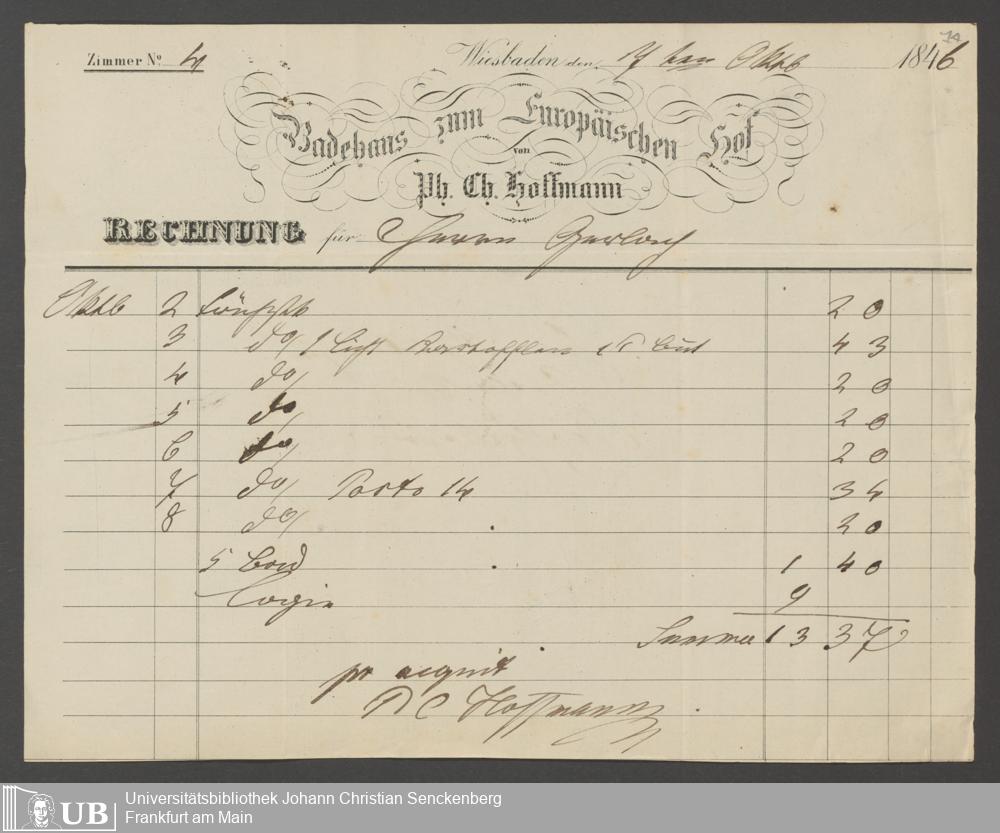 74
Zimmer No 4 Wiesbaden den Oktb 1846
Badehaus zum Europäischen Hof
von
Ph. Ch. Hoffmann
RECHNUNG für Herrn Gerlach
Oktb 2 Frühstk 20
3 do/ 1 Licht 43
4 do/ 20
5 do/ 20
6 do/ 20
7 do/ Porto 14 34
8 do/ 20
5 Bad 1 40
Logis 9
Summe 13 37
pr acquit
Hoffmann
UB
Universitätsbibliothek Johann Christian Senckenberg
Frankfurt am Main